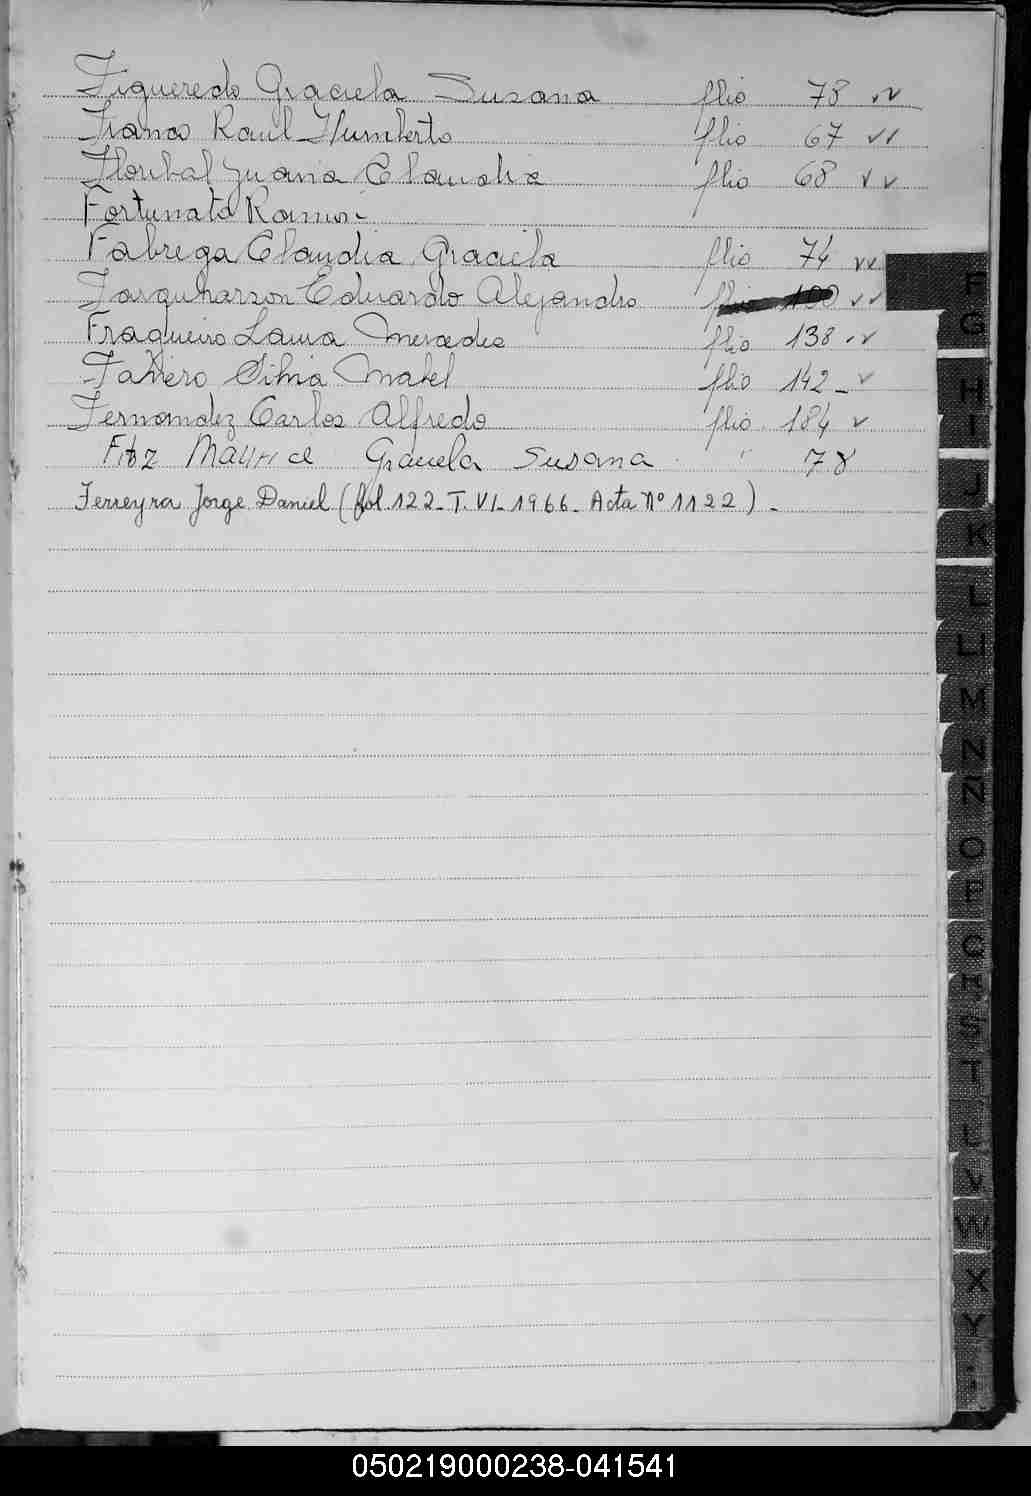 Figueredo Graciela Susana flio 78
Franco Raul Humberto flio 67
Floribal Juana Claudia flio 68
Fortunato Ramon
Fabrega Claudia Graciela flio 74
Farquharson Eduardo Alejandro flio 100
Fragueiro Laura Mercedes flio 138
Silvia Mabel flio 142
Fernandez Carlos Alfredo flio 184
Fitz Maurice Graciela Susana " 78
Ferreyra Jorge Daniel (fol. 122 - T. VI - 1966 - Acta Nº 1122) -
F
G
H
I
J
K
L
LL
M
N
Ñ
O
P
Q
R
S
T
U
V
W
X
Y
050219000238-041541